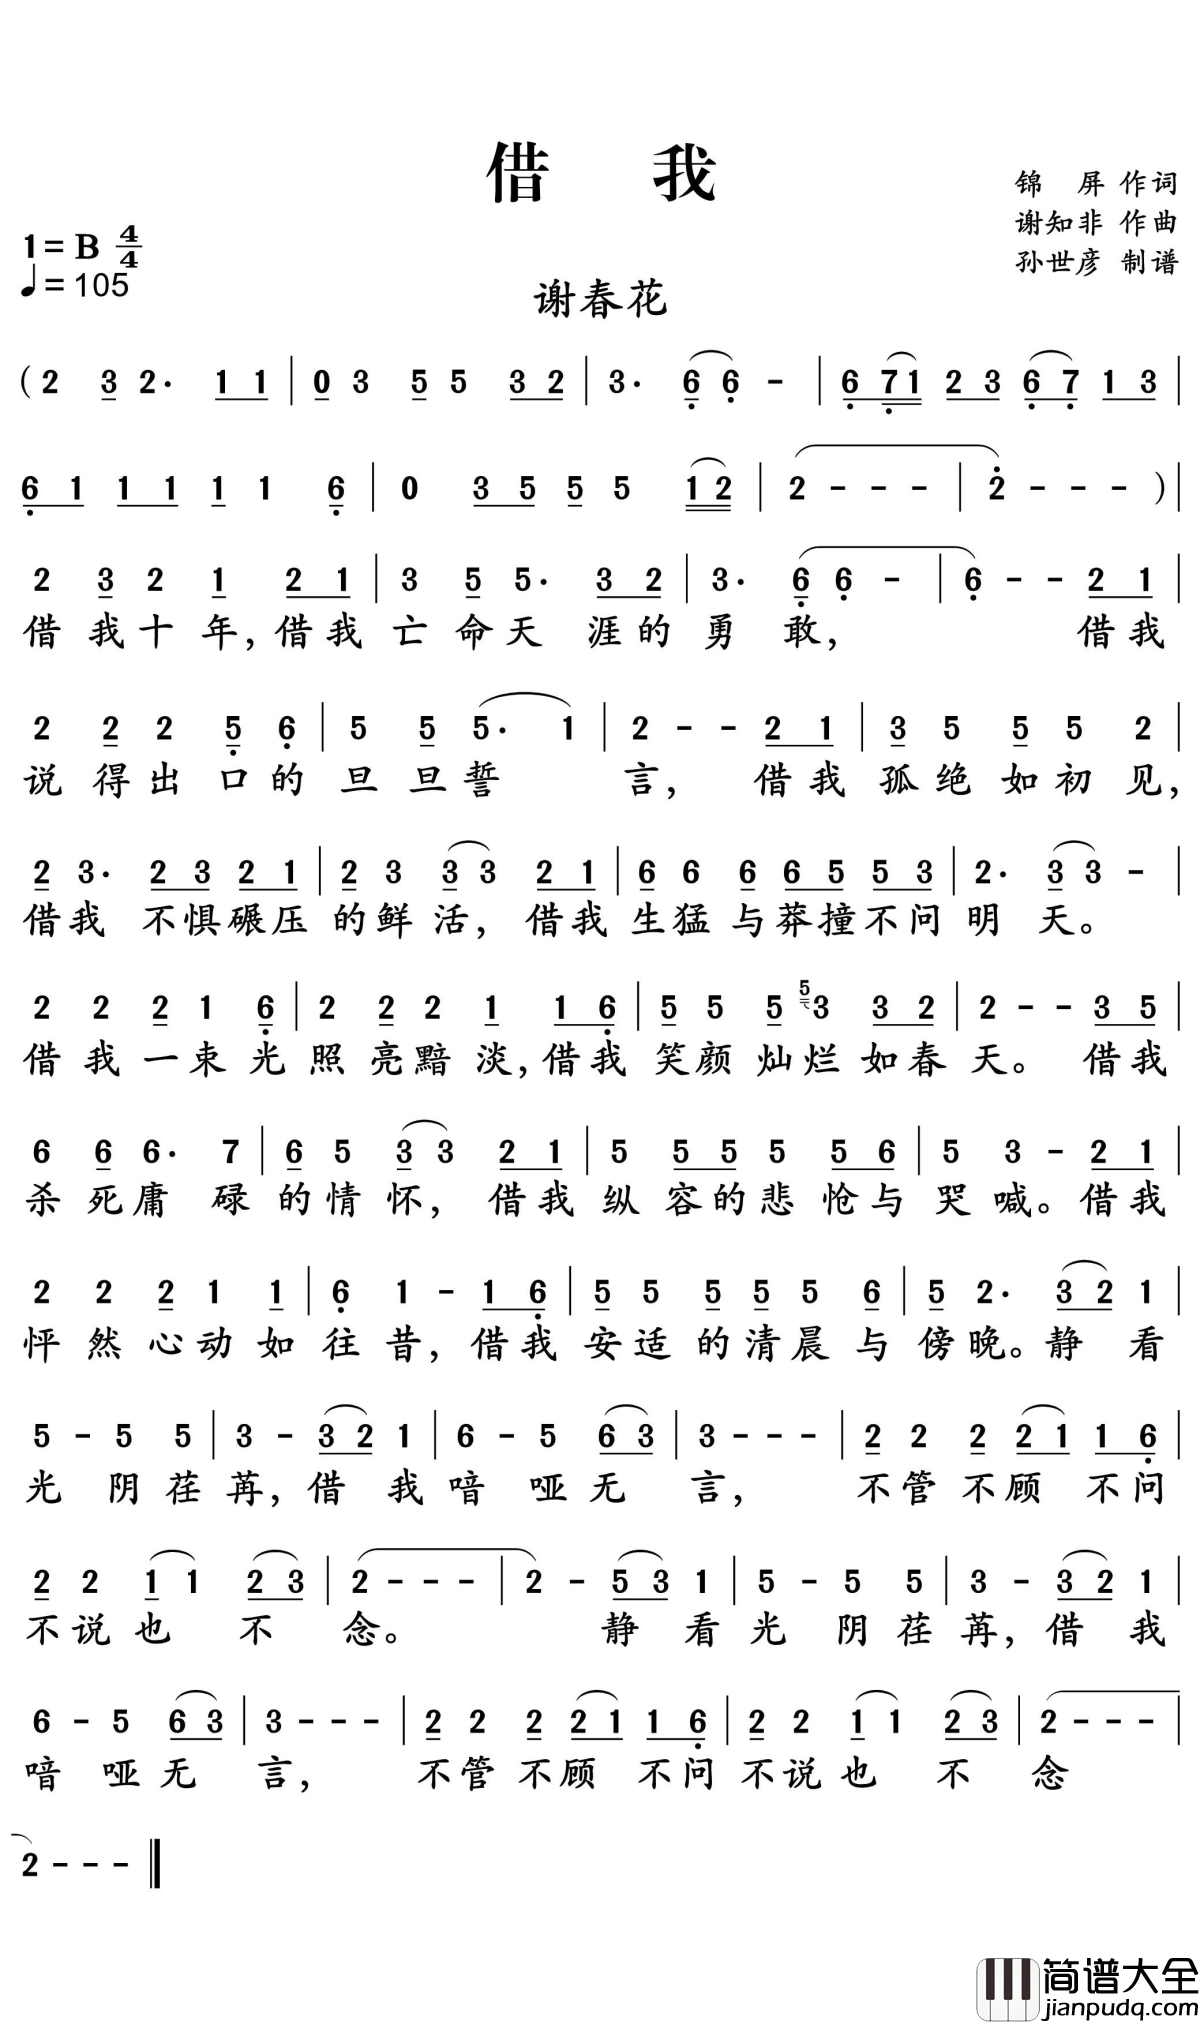 借 我
锦 屏 作词
谢知非 作曲
孙世彦 制谱
1=B 4/4
♩=105
谢春花
(2 3 2· 1 1 | 0 3 5 5 3 2 | 3· 6 6 - | 6 7 1 2 3 6 7 1 3 |
6 1 1 1 1 1 6 | 0 3 5 5 5 1 2 | 2 - - - | 2 - - - ) |
2 3 2 1 2 1 | 3 5 5· 3 2 | 3· 6 6 - | 6 - - 2 1 |
借 我 十 年, 借 我 亡 命 天 涯 的 勇 敢, 借 我
2 2 2 5 6 | 5 5 5· 1 | 2 - - 2 1 | 3 5 5 5 2 |
说 得 出 口 的 旦 旦 誓 言, 借 我 孤 绝 如 初 见,
2 3· 2 3 2 1 | 2 3 3 3 2 1 | 6 6 6 6 5 5 3 | 2· 3 3 - |
借 我 不 惧 碾 压 的 鲜 活, 借 我 生 猛 与 莽 撞 不 问 明 天。
2 2 2 1 6 | 2 2 2 1 1 6 | 5 5 5 5 3 3 2 | 2 - - 3 5 |
借 我 一 束 光 照 亮 黯 淡, 借 我 笑 颜 灿 烂 如 春 天。 借 我
6 6 6· 7 | 6 5 3 3 2 1 | 5 5 5 5 5 6 | 5 3 - 2 1 |
杀 死 庸 碌 的 情 怀, 借 我 纵 容 的 悲 怆 与 哭 喊。 借 我
2 2 2 1 1 | 6 1 - 1 6 | 5 5 5 5 5 6 | 5 2· 3 2 1 |
怦 然 心 动 如 往 昔, 借 我 安 适 的 清 晨 与 傍 晚。 静 看
5 - 5 5 | 3 - 3 2 1 | 6 - 5 6 3 | 3 - - - | 2 2 2 2 1 1 6 |
光 阴 荏 苒, 借 我 喑 哑 无 言, 不 管 不 顾 不 问
2 2 1 1 2 3 | 2 - - - | 2 - 5 3 1 | 5 - 5 5 | 3 - 3 2 1 |
不 说 也 不 念。 静 看 光 阴 荏 苒, 借 我
6 - 5 6 3 | 3 - - - | 2 2 2 2 1 1 6 | 2 2 1 1 2 3 | 2 - - - |
喑 哑 无 言, 不 管 不 顾 不 问 不 说 也 不 念
2 - - - ‖
简谱大全
jianpudq.com